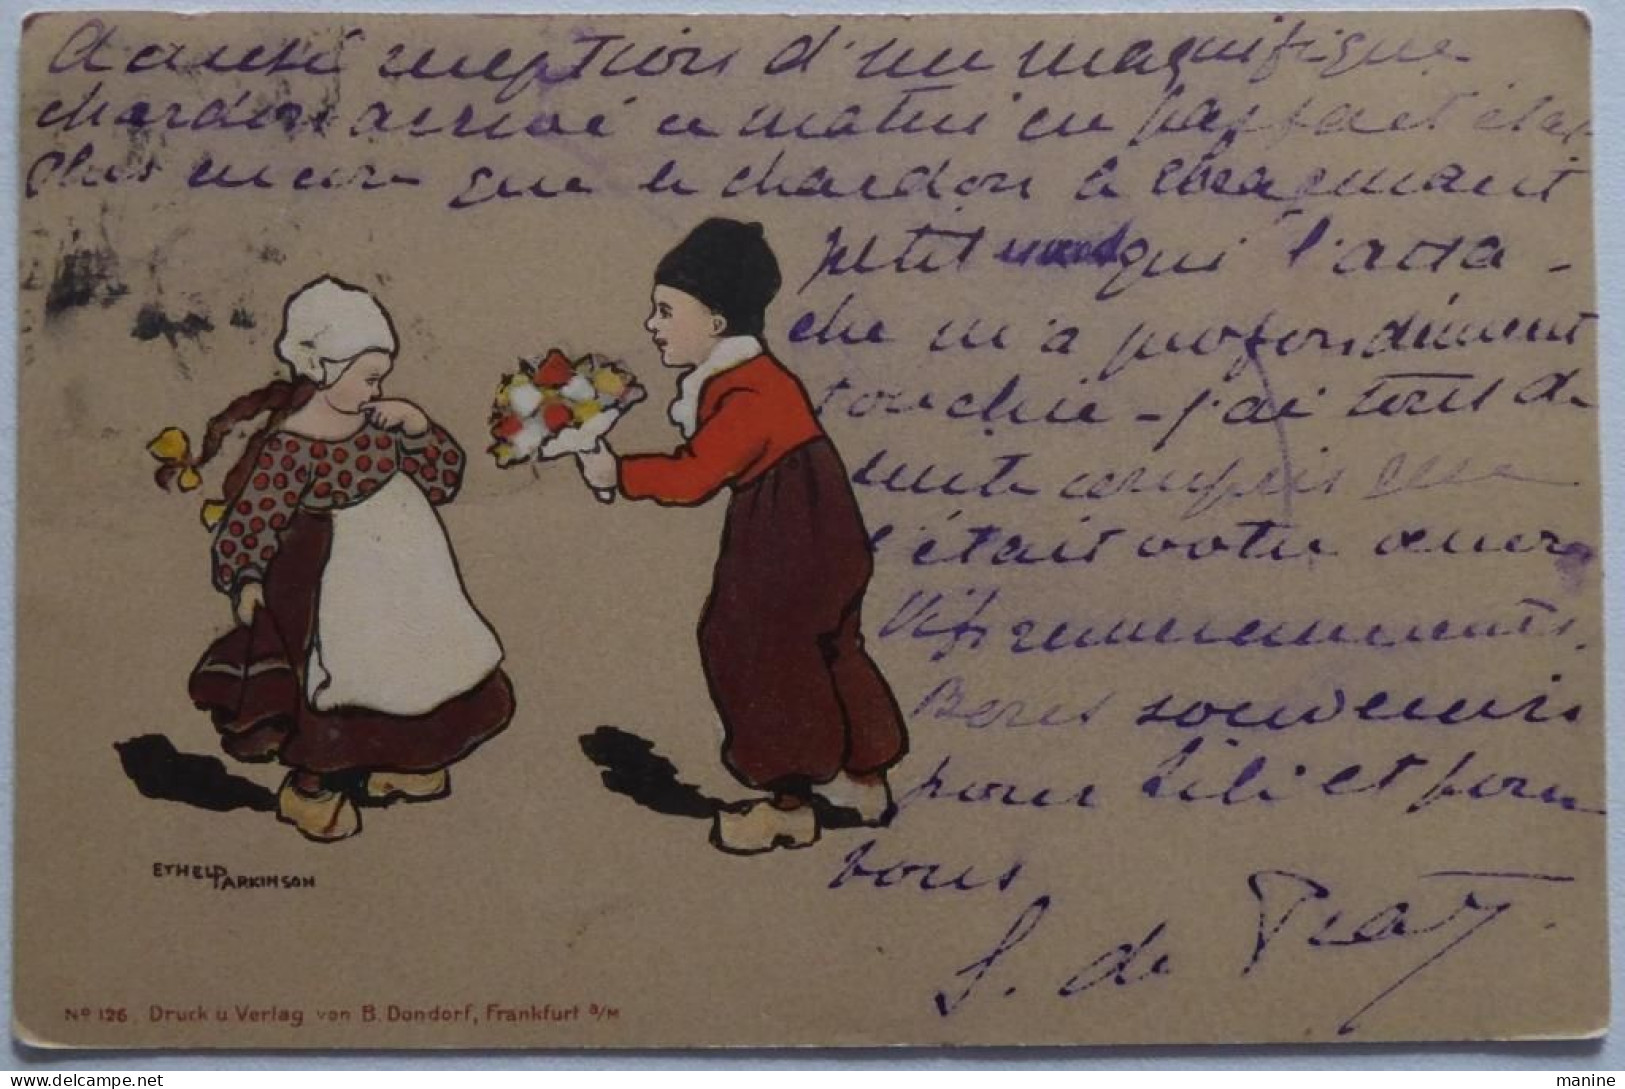 Accusé réception d'un magnifique
chardon arrivé ce matin en parfait état
Plus encore que le chardon le charmant
petit qui l'atta-
che m'a profondément
touchée - j'ai tout de
suite compris que
c'était votre œuvre
Vifs remerciements.
Bons souvenirs
pour Lili et pour
vous
S. de Prat.
ETHEL PARKINSON
No 126. Druck u Verlag von B. Dondorf, Frankfurt a/M
manine